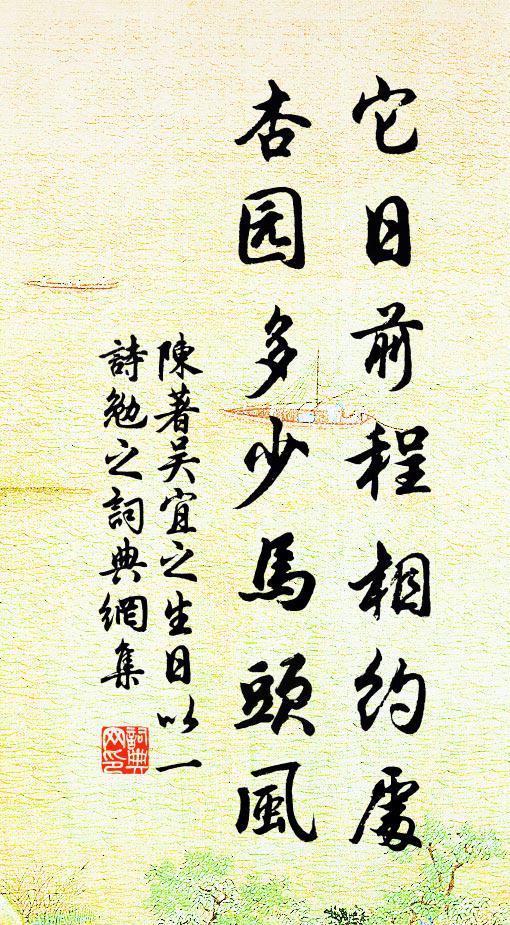 它日前程相約處
杏园多少馬頭風
陳著吴宜之生日以一
詩勉之詞典網集
詞典
网印